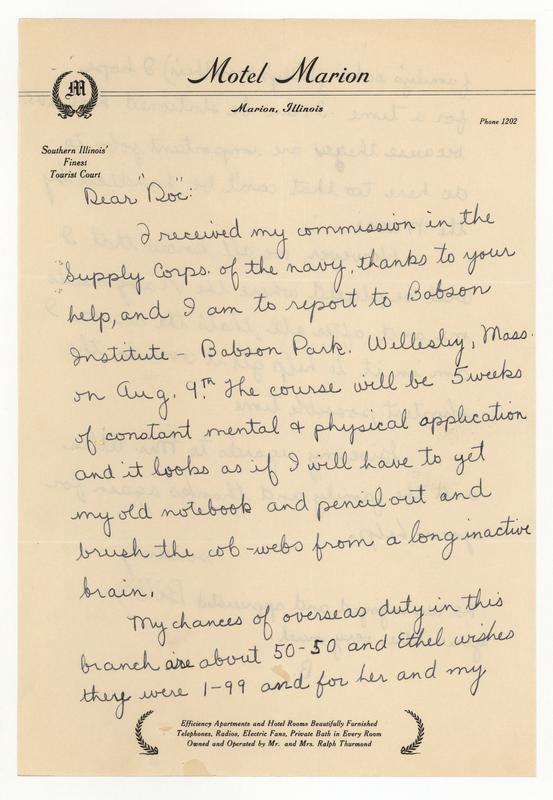 M
Motel Marion
Marion, Illinois
Phone 1202
Southern Illinois'
Finest
Tourist Court
Dear "Doc":
I received my commission in the
Supply Corps. of the navy, thanks to your
help, and I am to report to Babson
Institute - Babson Park. Wellesley, Mass.
on Aug. 9th. The course will be 5 weeks
of constant mental & physical application
and it looks as if I will have to get
my old notebook and pencil out and
brush the cob-webs from a long inactive
brain.
My chances of overseas duty in this
branch are about 50-50 and Ethel wishes
they were 1-99 and for her and my
Efficiency Apartments and Hotel Rooms Beautifully Furnished
Telephones, Radios, Electric Fans, Private Bath in Every Room
Owned and Operated by Mr. and Mrs. Ralph Thurmond